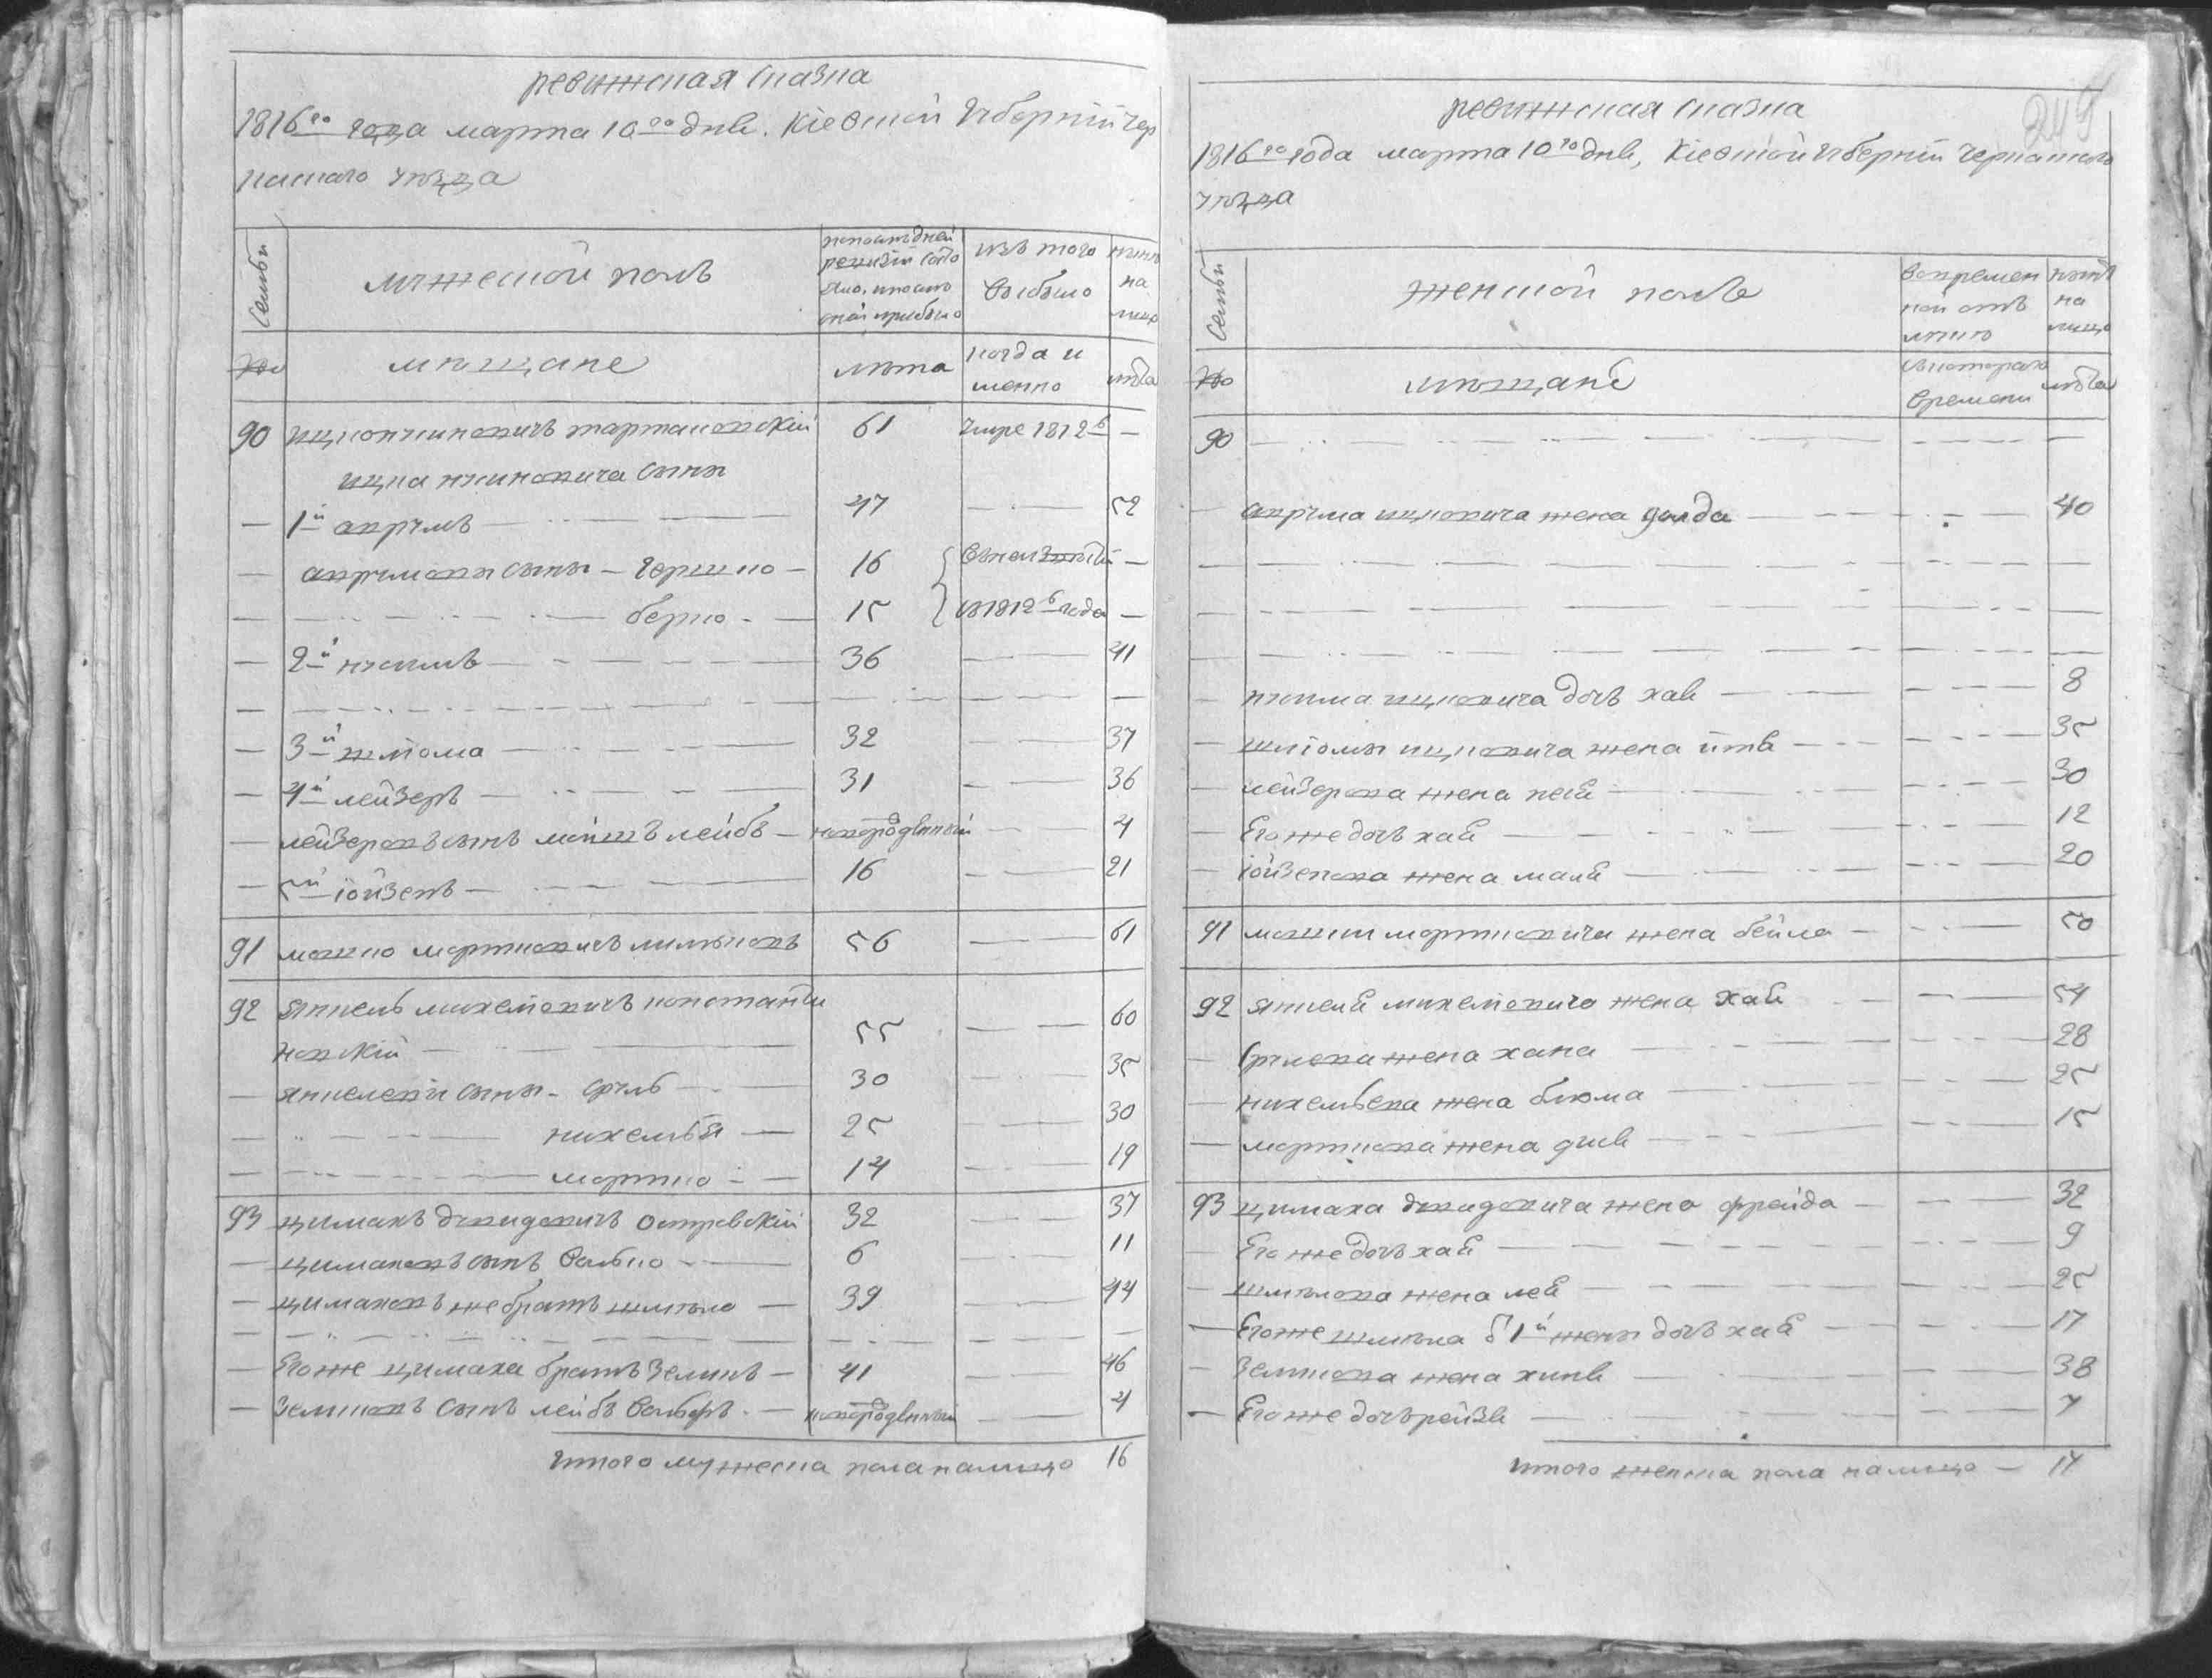 ревижская сказка
1816го года марта 10го дня. Кіевской губерніи Чер
каскаго уезда
Семьи
мужеской полъ
попоследней ревизіи состо яло, и после оной прибыло
изъ того выбыло
ныне на лицо
№
мещане
лета
когда и менно
лета
90 ицко нухимовичъ тартаковскій 61 умре 1812г —
ицка нухимовича сыны
— 1й аврумъ — 47 — 52
— аврумовы сыны — гершко — 16 —
— берко — 15 в 1812г года —
— 2й нухимъ — 36 — 41
— 3й шліома — 32 — 37
— 4й лейзеръ — 31 — 36
— лейзеровъ сынъ мойшъ лейбъ — новорожденный — 4
— 5й іойзепъ — 16 — 21
91 мошко мортковичъ 56 — 61
92 янкель михелiовичъ константи
новскій — 55 — 60
— янкелевы сыны — сруль — 30 — 35
— михельва — 25 — 30
— мортко — 14 — 19
93 цимахъ давидовичъ островскій 32 — 37
— цимаховъ сынъ волько — 6 — 11
— цимаховъ же братъ шмилю — 39 — 44
— его же цимаха братъ зеликъ — 41 — 46
— зеликовъ сынъ лейбъ вольфъ — новорожденный — 4
итого мужеска пола налицо 16
249
ревижская сказка
1816го года марта 10го дня, Кіевской губерніи Черкаскаго
уезда
Семьи
женской полъ
вовремен ной отлучке
ныне на лицо
№
мещане
скотораго времени
лета
90 —
— аврума ицковича жена голда — 40
— нухима ицковича дочъ хая — 8
— шліомы ицковича жена итя — 35
— лейзерова жена песя — 30
— его же дочъ хая — 12
— іойзепова жена маля — 20
91 мошки мортковича жена бейла — 50
92 янкеля михелiовича жена хая — 54
— срулева жена хана — 28
— михельева жена блюма — 25
— морткова жена — 15
93 цимаха давидовича жена фрейда — 32
— его же дочъ хая — 9
— шмилова жена лея — 25
— его же шмила о 1й жены дочъ хая — 17
— зеликова жена хиня — 38
— его же дочъ рейзя — 7
итого женска пола налицо — 14